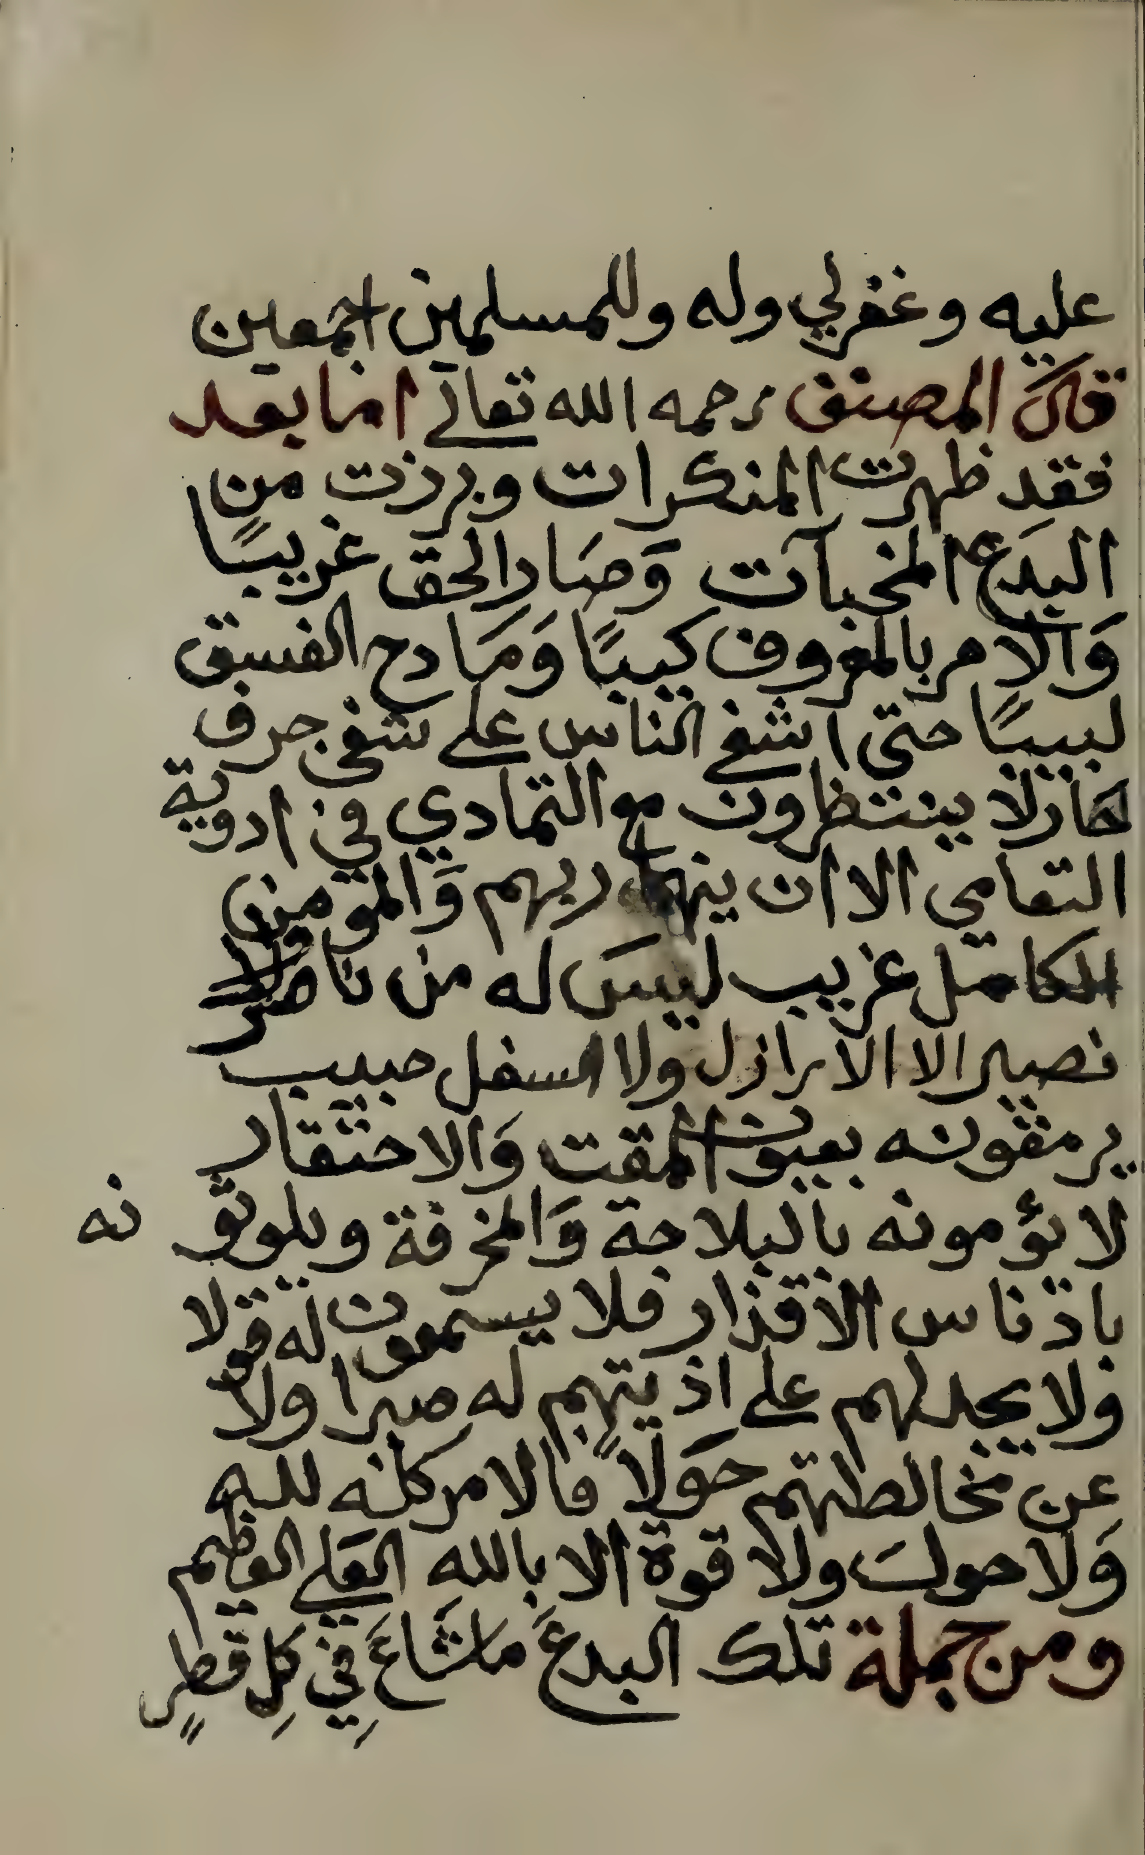 عليه وغفر لي وله وللمسلمين اجمعين
قال المصنف رحمه الله تعالى اما بعد
فقد ظهرت المنكرات وبرزت من
البدع المخبآت وَصَار الحق غريبًا
وَالامر بالمعروف كئيبًا وَمَادح الفسق
لبيبًا حتى اشفى الناس على شفى جرف
هار لا ينتظرون مع التمادي في اودية
التعامي الا ان ينهار بهم وَالمؤمن
الكامل غريب ليسَ له من ناصر ولا
نصير الا الارازل ولا السفل حبيب
يرمقونه بعيون المقت وَالاحتقار
لا يؤمونه بالبلاجة وَالمخرفة ويلوثونه
باذناس الاقذار فلا يسمعون له قولا
ولا يجد لهم على اذيتهم له صبرا ولا
عن مخالطتهم حَوَلًا فالامر كله لله
وَلا حولَ ولا قوة الا باللهِ العَلي العظيم
ومن جملة تلك البدعَ ماشَاعَ فِي كِل قطرٍ